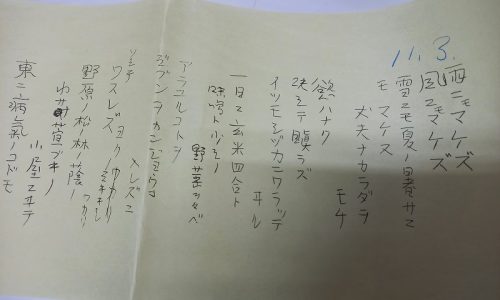 11.3.
雨ニモマケズ
風ニモマケズ
雪ニモ夏ノ暑サニ
モ マケズ
丈夫ナカラダヲ
モチ
慾ハナク
決シテ瞋ラズ
イツモシヅカニワラッテ
ヰル
一日ニ玄米四合ト
味噌ト少シノ
野菜ヲタベ
アラユルコトヲ
ジブンヲカンジョウニ
入レズニ
ヨクミキキシ
ワカリ
ソシテ
ワスレズ
野原ノ松ノ林ノ蔭ノ
小屋ニヰテ
東ニ病氣ノコドモ